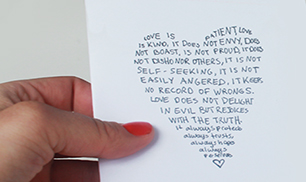 LOVE IS PATIENT LOVE
IS KIND. IT DOES NOT ENVY, DOES
NOT BOAST, IS NOT PROUD. IT DOES
NOT DISHONOR OTHERS, IT IS NOT
SELF-SEEKING, IT IS NOT
EASILY ANGERED, IT KEEPS
NO RECORD OF WRONGS.
LOVE DOES NOT DELIGHT
IN EVIL BUT REJOICES
WITH THE TRUTH.
it always protects
always trusts,
always hopes
always
perseveres